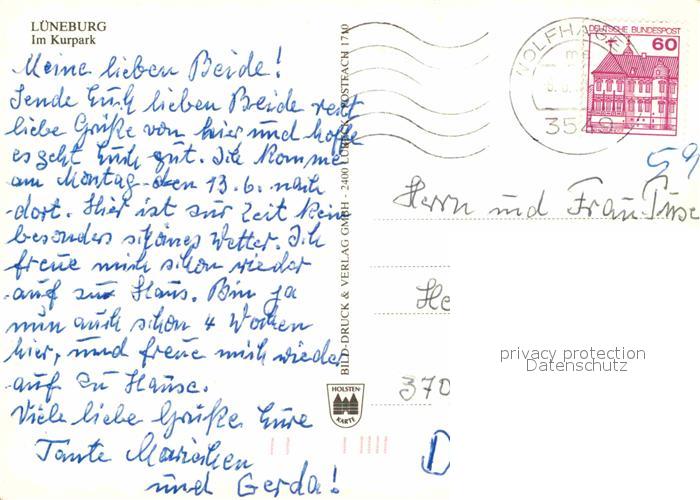 LÜNEBURG
Im Kurpark
Meine lieben Beide!
Sende Euch lieben Beide recht
liebe Grüße von hier und hoffe
es geht Euch gut. Ich komme
am Montag den 13.6. nach
dort. Hier ist zur Zeit kein
besonders schönes Wetter. Ich
freue mich schon wieder
auf zu Haus. Bin ja
nun auch schon 4 Wochen
hier, und freue mich wieder
auf zu Hause.
Viele liebe Grüße Eure
Tante Mariechen
und Gerda!
BILD-DRUCK & VERLAG GMBH - 2400 LÜBECK - POSTFACH 1710
HOLSTEN-
KARTE
WOLFHAGEN
3549
DEUTSCHE BUNDESPOST
60
59
Herrn und Frau
He
370
D
privacy protection
Datenschutz